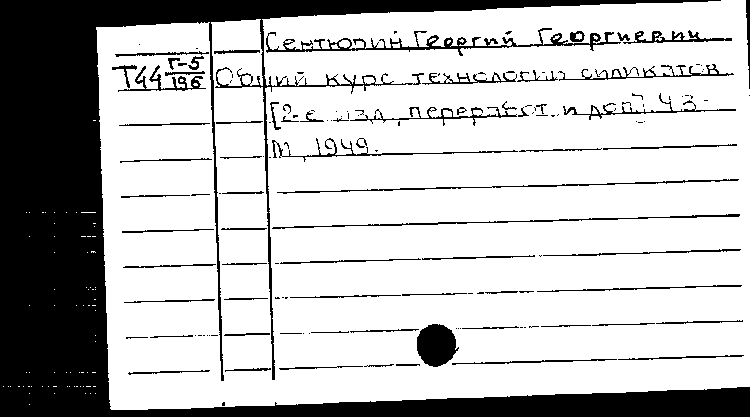 Сентюрин, Георгий Георгиевич
Т44 Г-5/196 Общий курс технологии силикатов
[2-е изд., переработ. и доп.] Ч 3.
М, 1949.